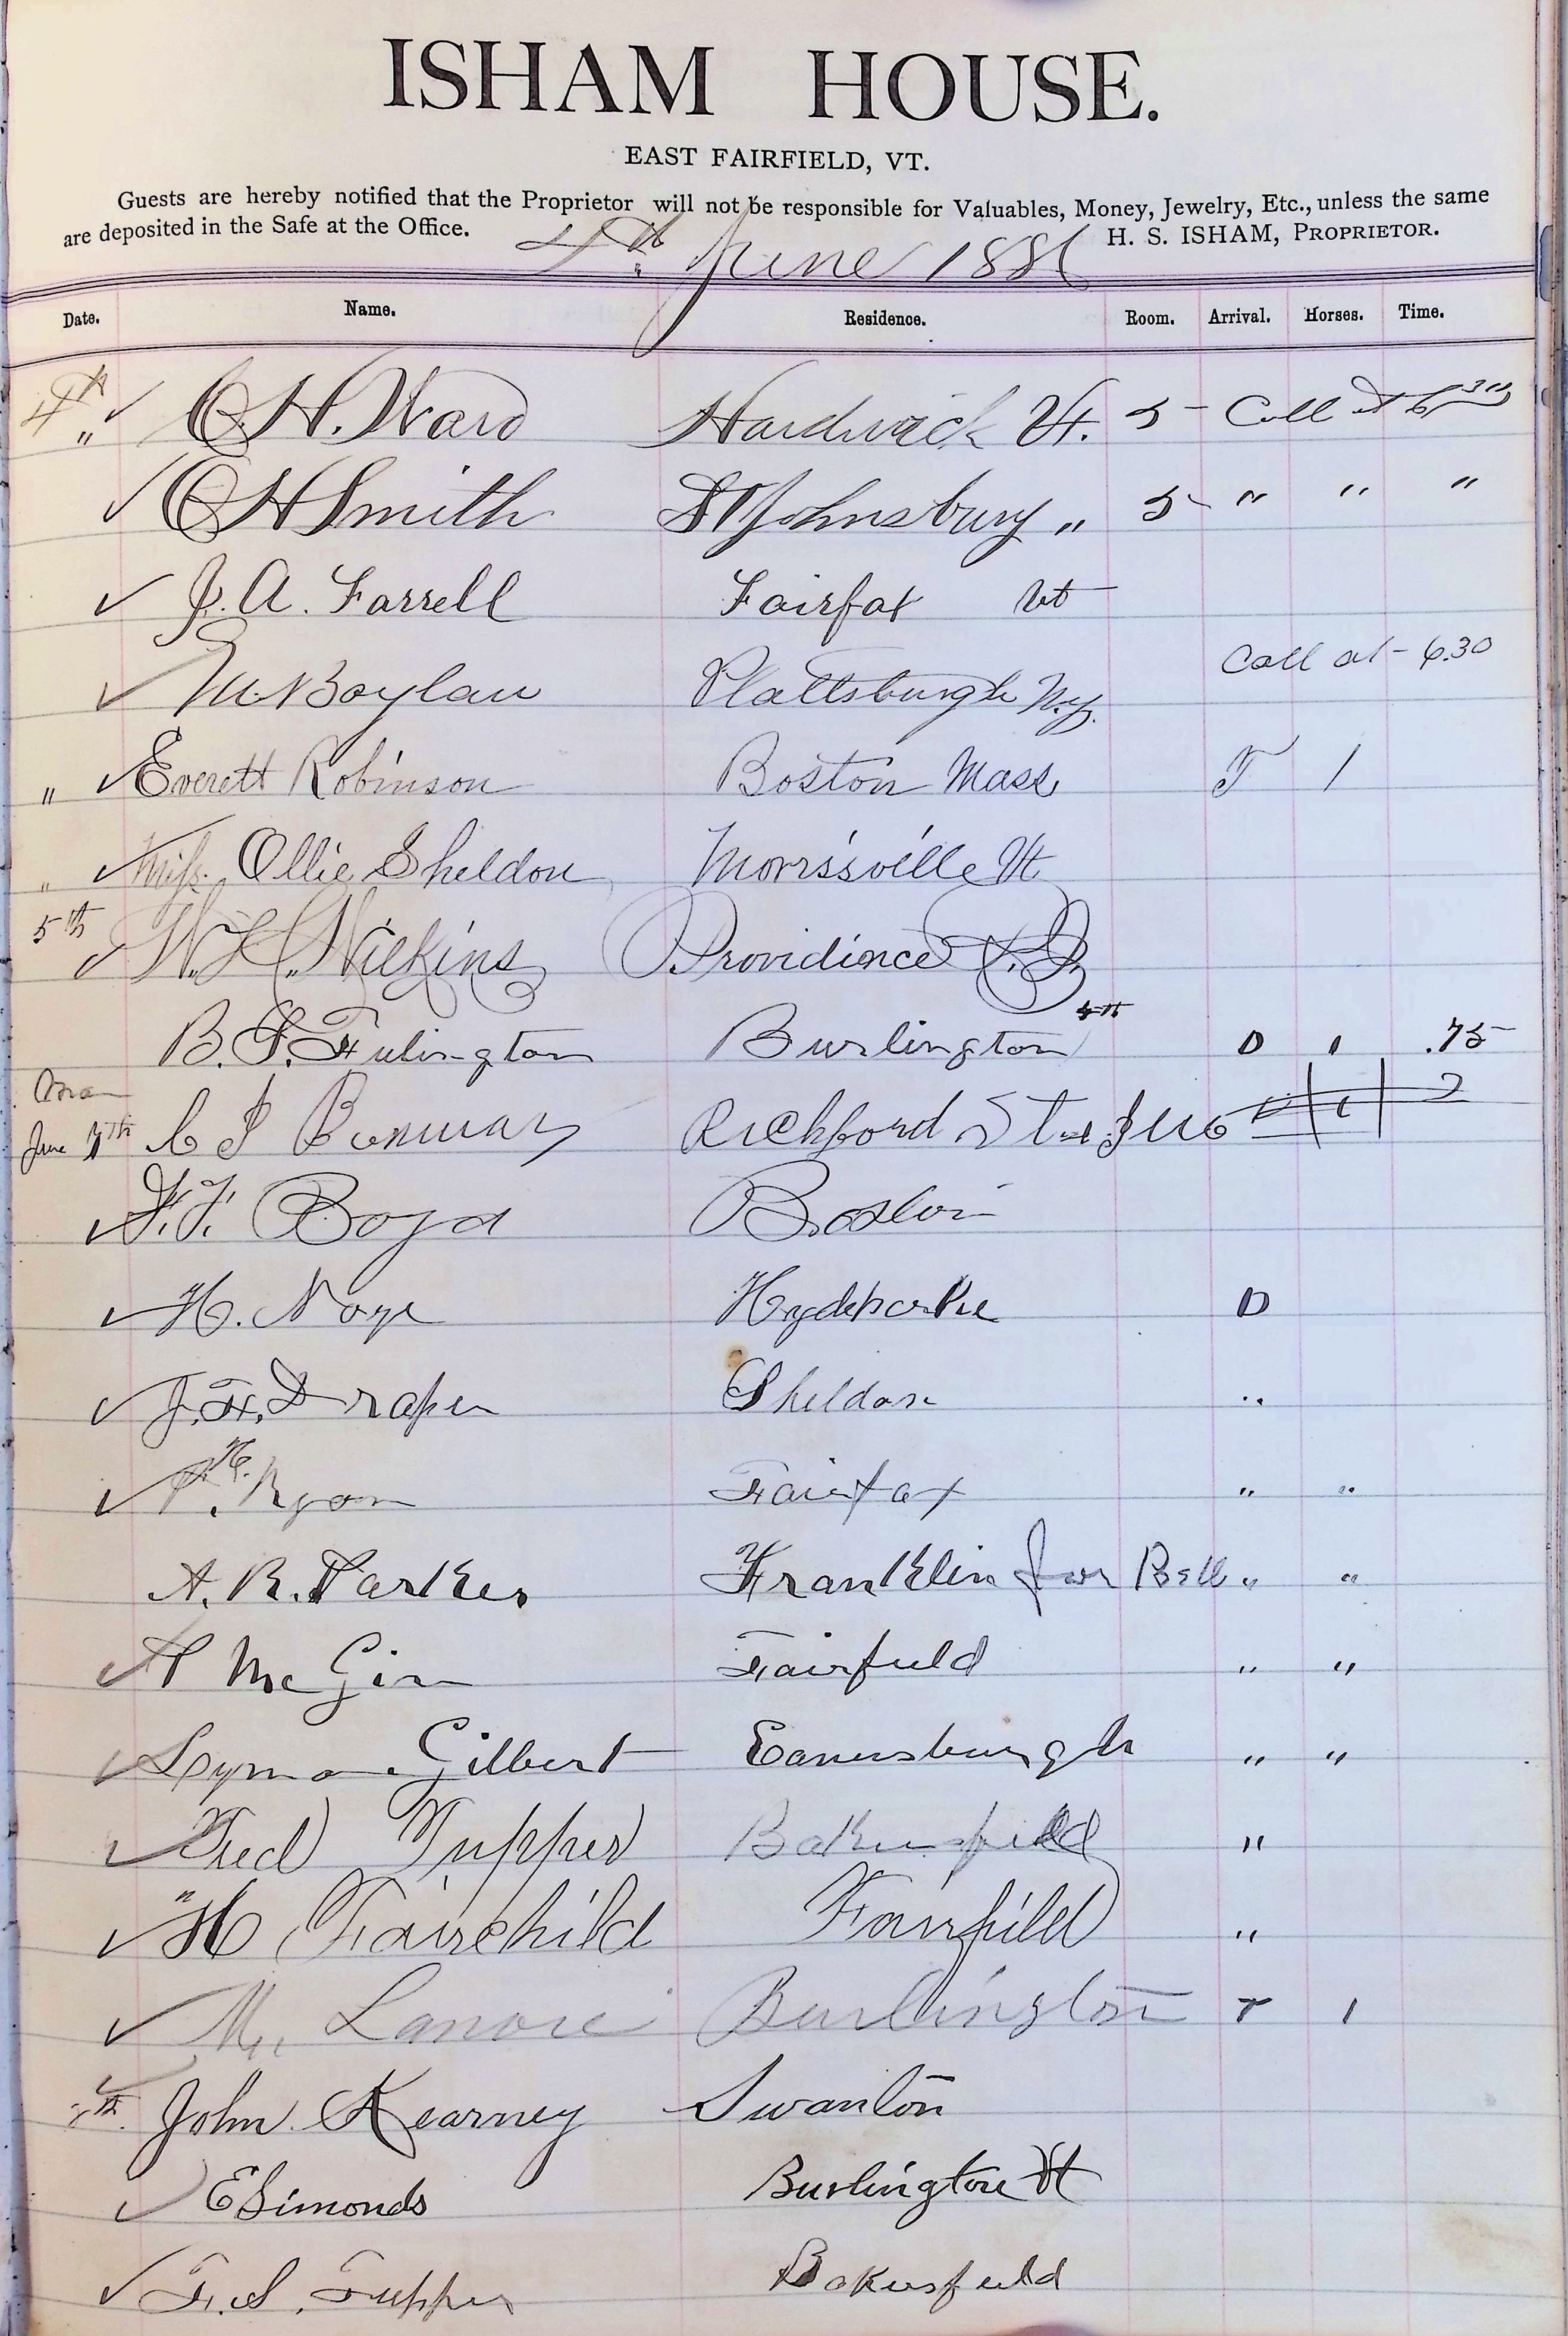 ISHAM HOUSE.
EAST FAIRFIELD, VT.
Guests are hereby notified that the Proprietor will not be responsible for Valuables, Money, Jewelry, Etc., unless the same
are deposited in the Safe at the Office. H. S. ISHAM, PROPRIETOR.
4th June 1886
Date. Name. Residence. Room. Arrival. Horses. Time.
4th " ✓ C. H. Ward Hardwick Vt. 5 Call at 6 30
✓ C H Smith St Johnsbury " 5 " " "
✓ J. A. Farrell Fairfax Vt
✓ M. Boylan Plattsburgh N.Y. Call at - 6.30
" ✓ Everett Robinson Boston Mass T 1
" ✓ Miss. Ollie Sheldon Morrisville Vt
5th ✓ W. L. Wilkins Providince R.I.
B. F. Burlington D 1 .75
June 7th C J Richford 2
✓ F. F. Boyd Boston
✓ H. Noye Hydeparke D
✓ J. H. Draper Sheldon "
✓ P. H. Ryan Fairfax " "
A. R. Parker Franklin for Bell " "
✓ P McGin Fairfield " "
✓ Lyman Gilbert Eanusburgh " "
✓ Fred Tupper Bakersfield "
✓ H Fairchild Fairfield "
✓ M. Lanore Burlington T 1
✓ John Kearney Swanton
✓ E Simonds Burlington Vt
✓ F. S. Tupper Bakersfield